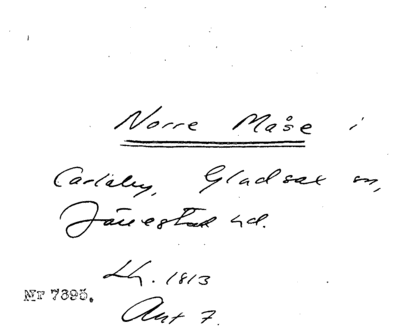 Norre Måse i
Carlaby, Gladsax sn,
Järrestad hd.
Lh. 1813
Nr 7395.
Akt 7.